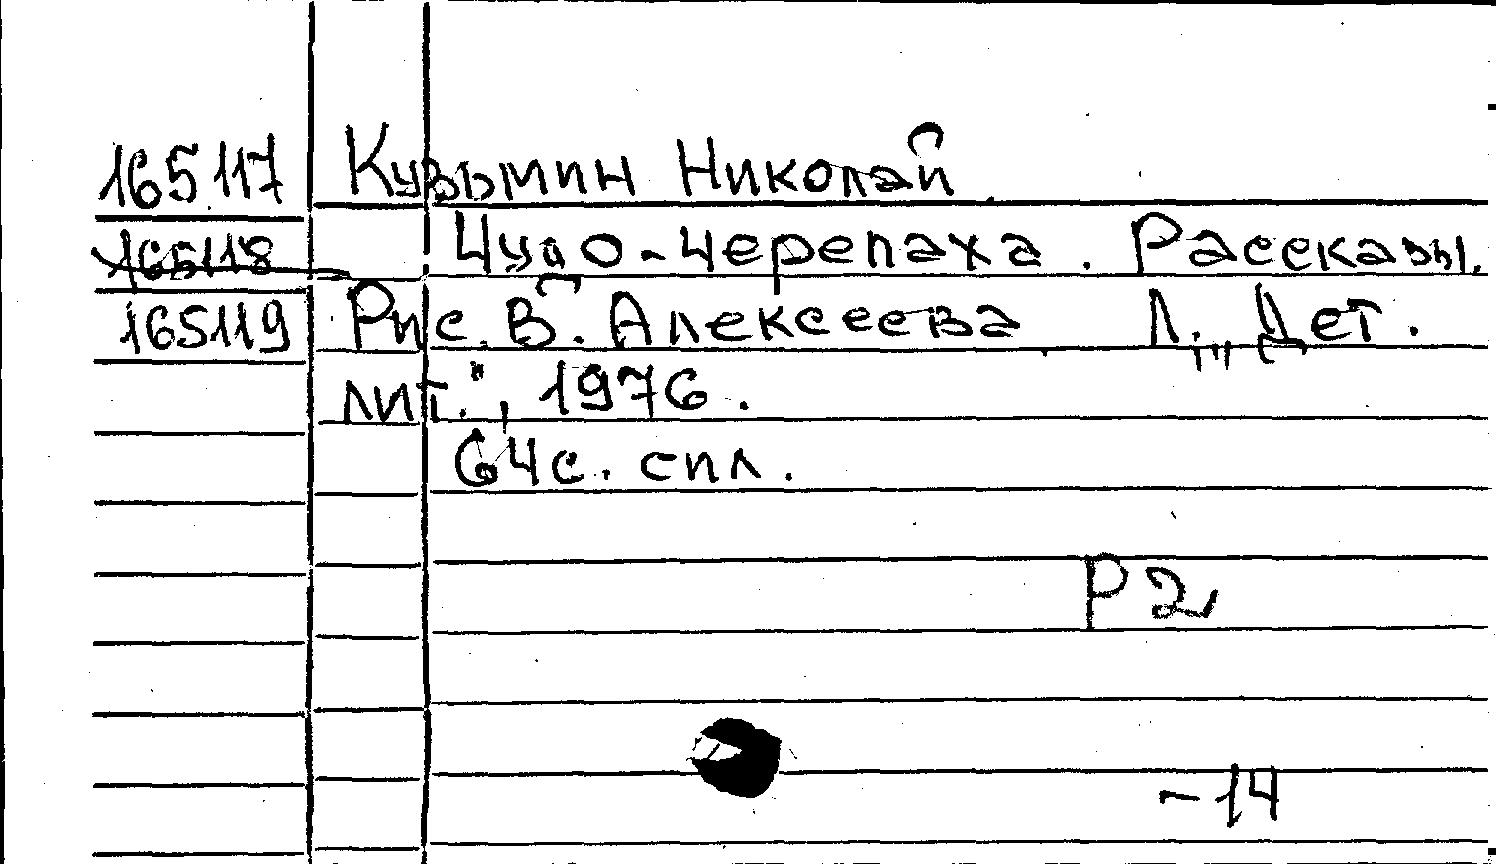 165117 Кузьмин Николай
165118 Чудо-черепаха. Рассказы.
165119 Рис. В. Алексеева Л., „Дет.
лит.", 1976.
64с. с ил.
Р2
-14